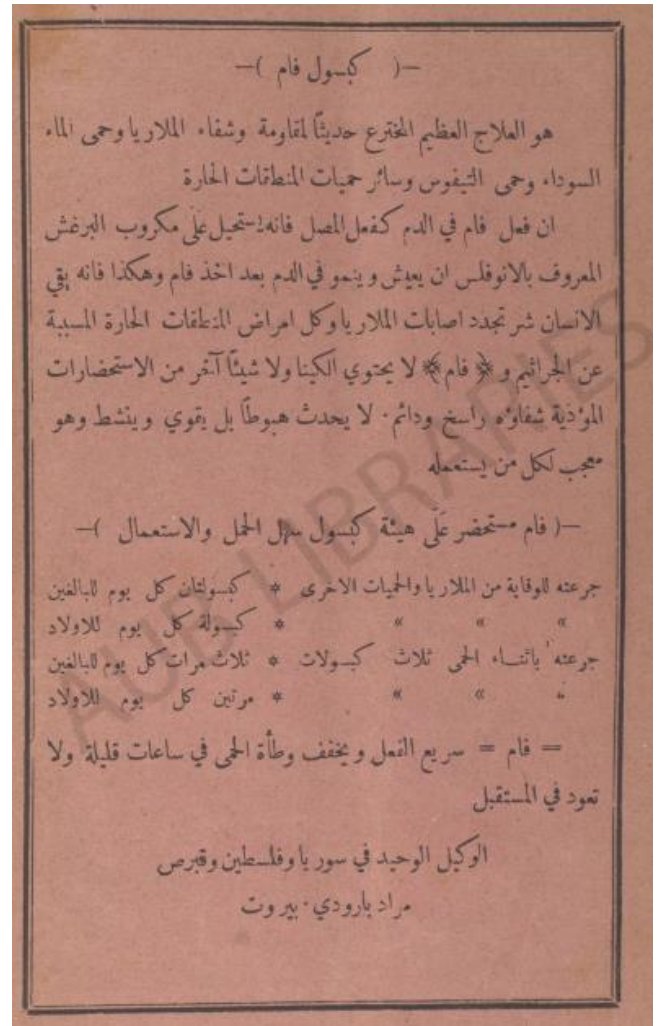 —( كبسول فام )—
هو العلاج العظيم المخترع حديثًا لمقاومة وشفاء الملاريا وحمى الماء
السوداء وحمى التيفوس وسائر حميات المنطقات الحارة
ان فعل فام في الدم كفعل المصل فانه يستحيل عَلَى مكروب البرغش
المعروف بالانوفلس ان يعيش وينمو في الدم بعد اخذ فام وهكذا فانه يقي
الانسان شر تجدد اصابات الملاريا وكل امراض المنطقات الحارة المسببة
عن الجراثيم و ﴿ فام ﴾ لا يحتوي الكينا ولا شيئًا آخر من الاستحضارات
المؤذية شفاؤه راسخ ودائم · لا يحدث هبوطًا بل يقوي وينشط وهو
معجب لكل من يستعمله
—( فام مستحضر عَلَى هيئة كبسول سهل الحمل والاستعمال )—
جرعته للوقاية من الملاريا والحميات الاخرى * كبسولتان كل يوم للبالغين
» » » * كبسولة كل يوم للاولاد
جرعته باثناء الحمى ثلاث كبسولات * ثلاث مرات كل يوم للبالغين
» » » * مرتين كل يوم للاولاد
= فام = سريع الفعل ويخفف وطأة الحمى في ساعات قليلة ولا
تعود في المستقبل
الوكيل الوحيد في سوريا وفلسطين وقبرص
مراد بارودي · بيروت
AUB LIBRARIES